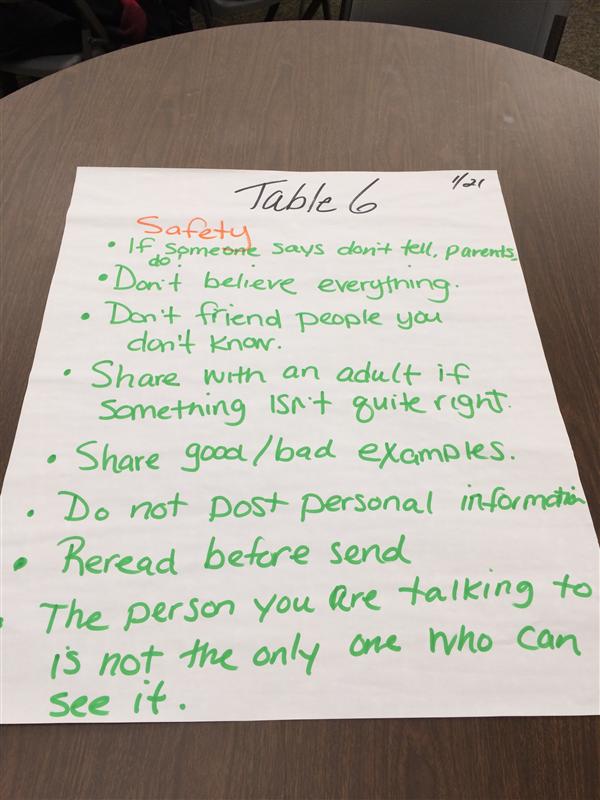 Table 6
1/21
Safety
• If someone says don't tell, parents,
do
• Don't believe everything.
• Don't friend people you
don't know.
• Share with an adult if
something isn't quite right.
• Share good/bad examples.
• Do not post personal information
• Reread before send
• The person you are talking to
is not the only one who can
see it.